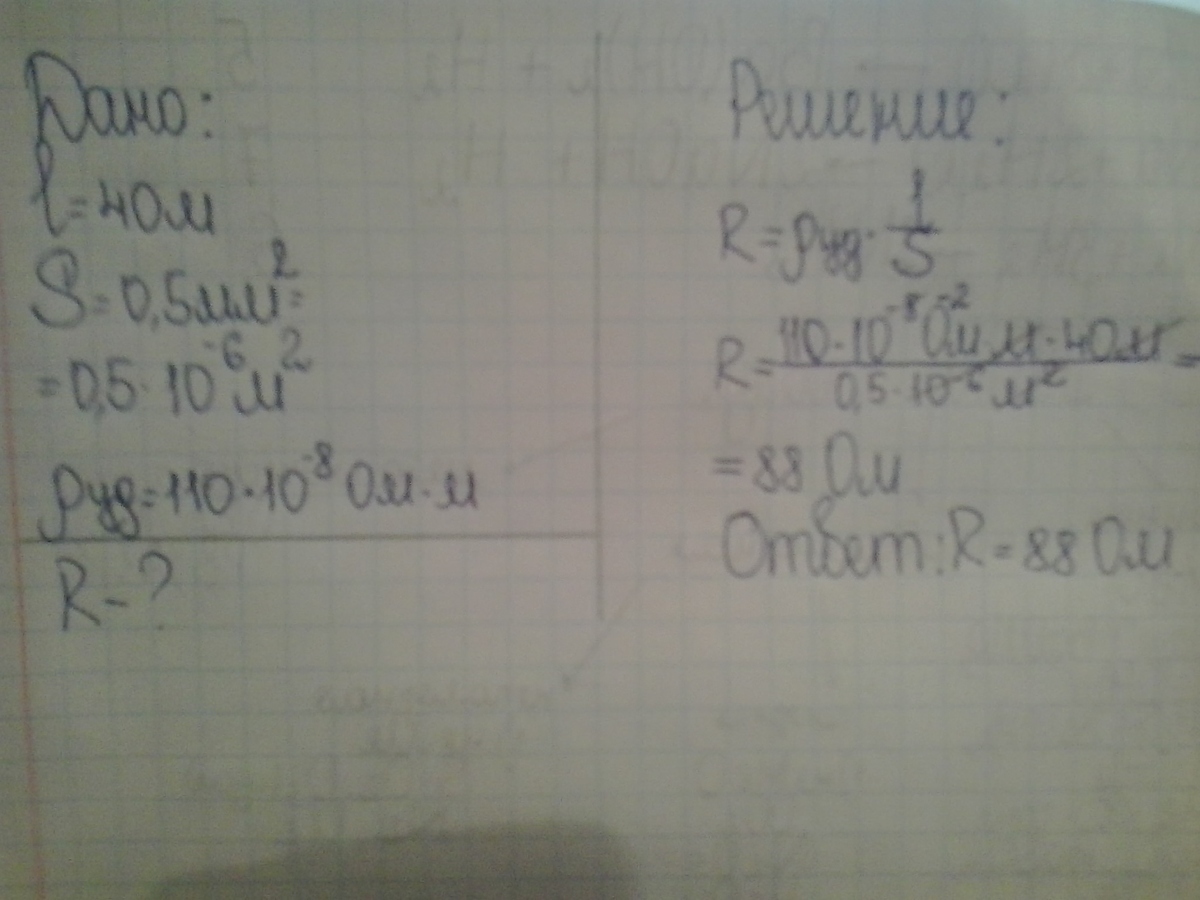 Дано:
l=40м
S=0,5мм²=
=0,5·10⁻⁶м²
ρуд=110·10⁻⁸ Ом·м
R-?
Решение:
R=ρуд·l/S
R=110·10⁻⁸ Ом м·40м/0,5·10⁻⁶ м²=
=88 Ом
Ответ:R=88 Ом